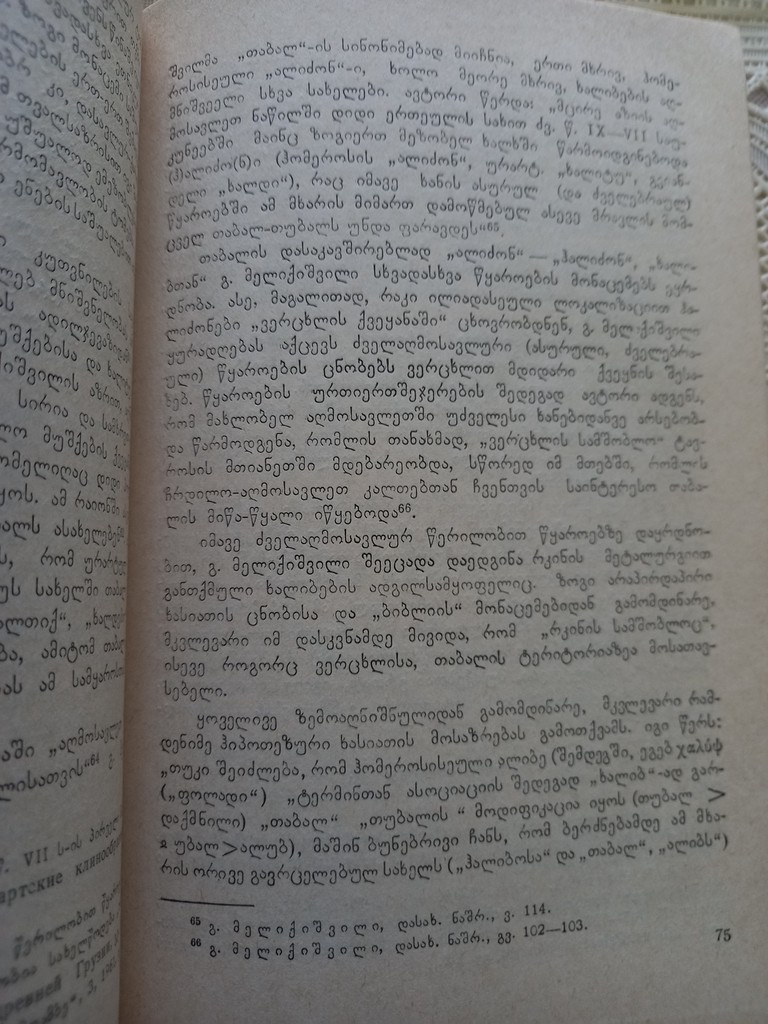 შვილმა „თაბალ“-ის სინონიმებად მიიჩნია, ერთი მხრივ, ჰომე-
როსისეული „ალიძონ“-ი, ხოლო მეორე მხრივ, ხალიბების აღ-
მნიშვნელი სხვა სახელები. ავტორი წერდა: „მცირე აზიის აღ-
მოსავლეთ ნაწილში დიდი ერთეულის სახით ძვ. წ. IX—VII საუ-
კუნეებში მაინც ზოგიერთ მეზობელ ხალხში წარმოიდგინებოდა
(ჰ)ალიძო(ნ)ი (ჰომეროსის „ალიძონ“, ურარტ. „ხალიტუ“,
დელი „ხალდი“), რაც იმავე ხანის ასურულ (და ძველებრაულ)
წყაროებში ამ მხარის მიმართ დამოწმებულ ასევე მრავლის მომ-
ცველ თაბალ-თუბალს უნდა ფარავდეს“⁶⁵.
თაბალის დასაკავშირებლად „ალიძონ“ — „ჰალიძონ“, „ხალი-
ბთან“ გ. მელიქიშვილი სხვადასხვა წყაროების მონაცემებს ეყრ-
დნობა. ასე, მაგალითად, რაკი ილიადასეული ლოკალიზაციით ჰა-
ლიძონები „ვერცხლის ქვეყანაში“ ცხოვრობდნენ, გ. მელიქიშვილი
ყურადღებას აქცევს ძველაღმოსავლური (ასურული, ძველებრა-
ული) წყაროების ცნობებს ვერცხლით მდიდარი ქვეყნის შესა-
ხებ. წყაროების ურთიერთშეჯერების შედეგად ავტორი ადგენს,
რომ მახლობელ აღმოსავლეთში უძველესი ხანებიდანვე არსებობ-
და წარმოდგენა, რომლის თანახმად, „ვერცხლის სამშობლო“ ტავ-
როსის მთიანეთში მდებარეობდა, სწორედ იმ მთებში, რომლის
ჩრდილო-აღმოსავლეთ კალთებთან ჩვენთვის საინტერესო თაბა-
ლის მიწა-წყალი იწყებოდა⁶⁶.
იმავე ძველაღმოსავლურ წერილობით წყაროებზე დაყრდნო-
ბით, გ. მელიქიშვილი შეეცადა დაედგინა რკინის მეტალურგიით
განთქმული ხალიბების ადგილსამყოფელიც. ზოგი არაპირდაპირი
ხასიათის ცნობისა და „ბიბლიის“ მონაცემებიდან გამომდინარე,
მკვლევარი იმ დასკვნამდე მივიდა, რომ „რკინის სამშობლოც“,
ისევე როგორც ვერცხლისა, თაბალის ტერიტორიაზეა მოსათავ-
სებელი.
ყოველივე ზემოაღნიშნულიდან გამომდინარე, მკვლევარი რამ-
დენიმე ჰიპოთეზური ხასიათის მოსაზრებას გამოთქვამს. იგი წერს:
„თუკი შეიძლება, რომ ჰომეროსისეული ალიბე (შემდეგში, ეგებ χαλυψ
(„ფოლადი“) „ტერმინთან ასოციაციის შედეგად „ხალიბ“-ად გარ-
დაქმნილი) „თაბალ“ „თუბალის “ მოდიფიკაცია იყოს (თუბალ >
უბალ>ალუბ), მაშინ ბუნებრივი ჩანს, რომ ბერძნებამდე ამ მხა-
რის ორივე გავრცელებულ სახელს („ჰალიბოსა“ და „თაბალ“, „ალიბს“)
⁶⁵ გ. მელიქიშვილი, დასახ. ნაშრ., გვ. 114.
⁶⁶ გ. მელიქიშვილი, დასახ. ნაშრ., გვ. 102—103.
75